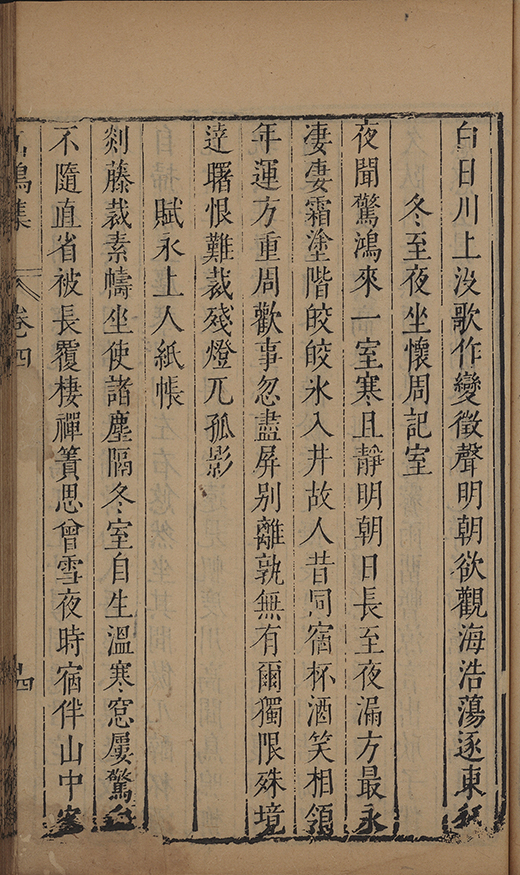 白日川上沒歌作變徵聲明朝欲觀海浩蕩逐東
冬至夜坐懷周記室
夜聞驚鴻來一室寒且靜明朝日長至夜漏方最永
淒淒霜塗階皎皎氷入井故人昔同宿杯酒笑相領
年運方重周歡事忽盡屏别離孰無有爾獨限殊境
達曙恨難裁殘燈兀孤影
賦永上人紙帳
剡藤裁素幬坐使諸塵隔冬室自生溫寒窓屢驚白
不隨直省被長覆棲禪簀思曾雪夜時宿伴山中客
鳴集
卷四
四